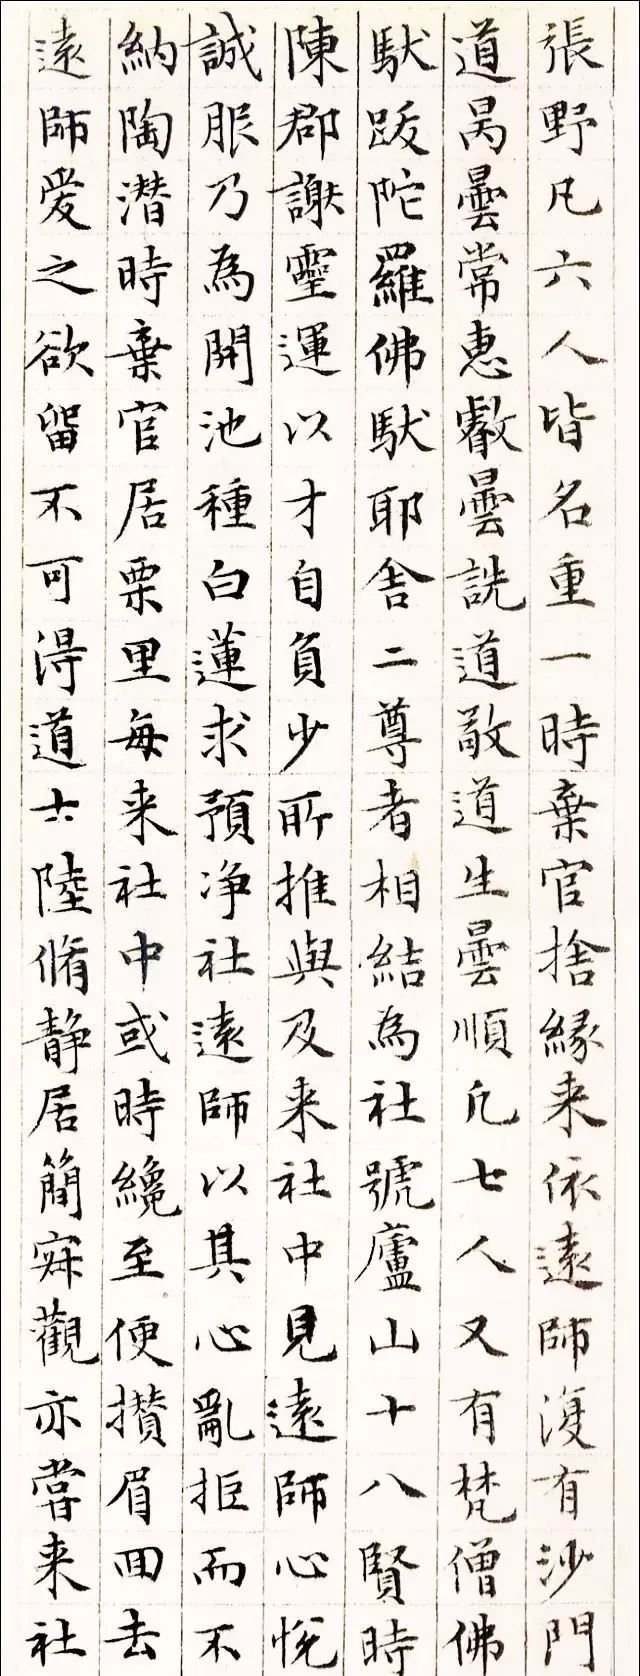 張野凡六人皆名重一時棄官捨緣来依遠師復有沙門
道昺曇常惠叡曇詵道敬道生曇順凡七人又有梵僧佛
馱跋陀羅佛馱耶舍二尊者相結為社號廬山十八賢時
陳郡謝靈運以才自負少所推與及来社中見遠師心悅
誠服乃為開池種白蓮求預净社遠師以其心亂拒而不
納陶潛時棄官居栗里每来社中或時纔至便攢眉回去
遠師愛之欲留不可得道士陸脩靜居簡寂觀亦嘗来社